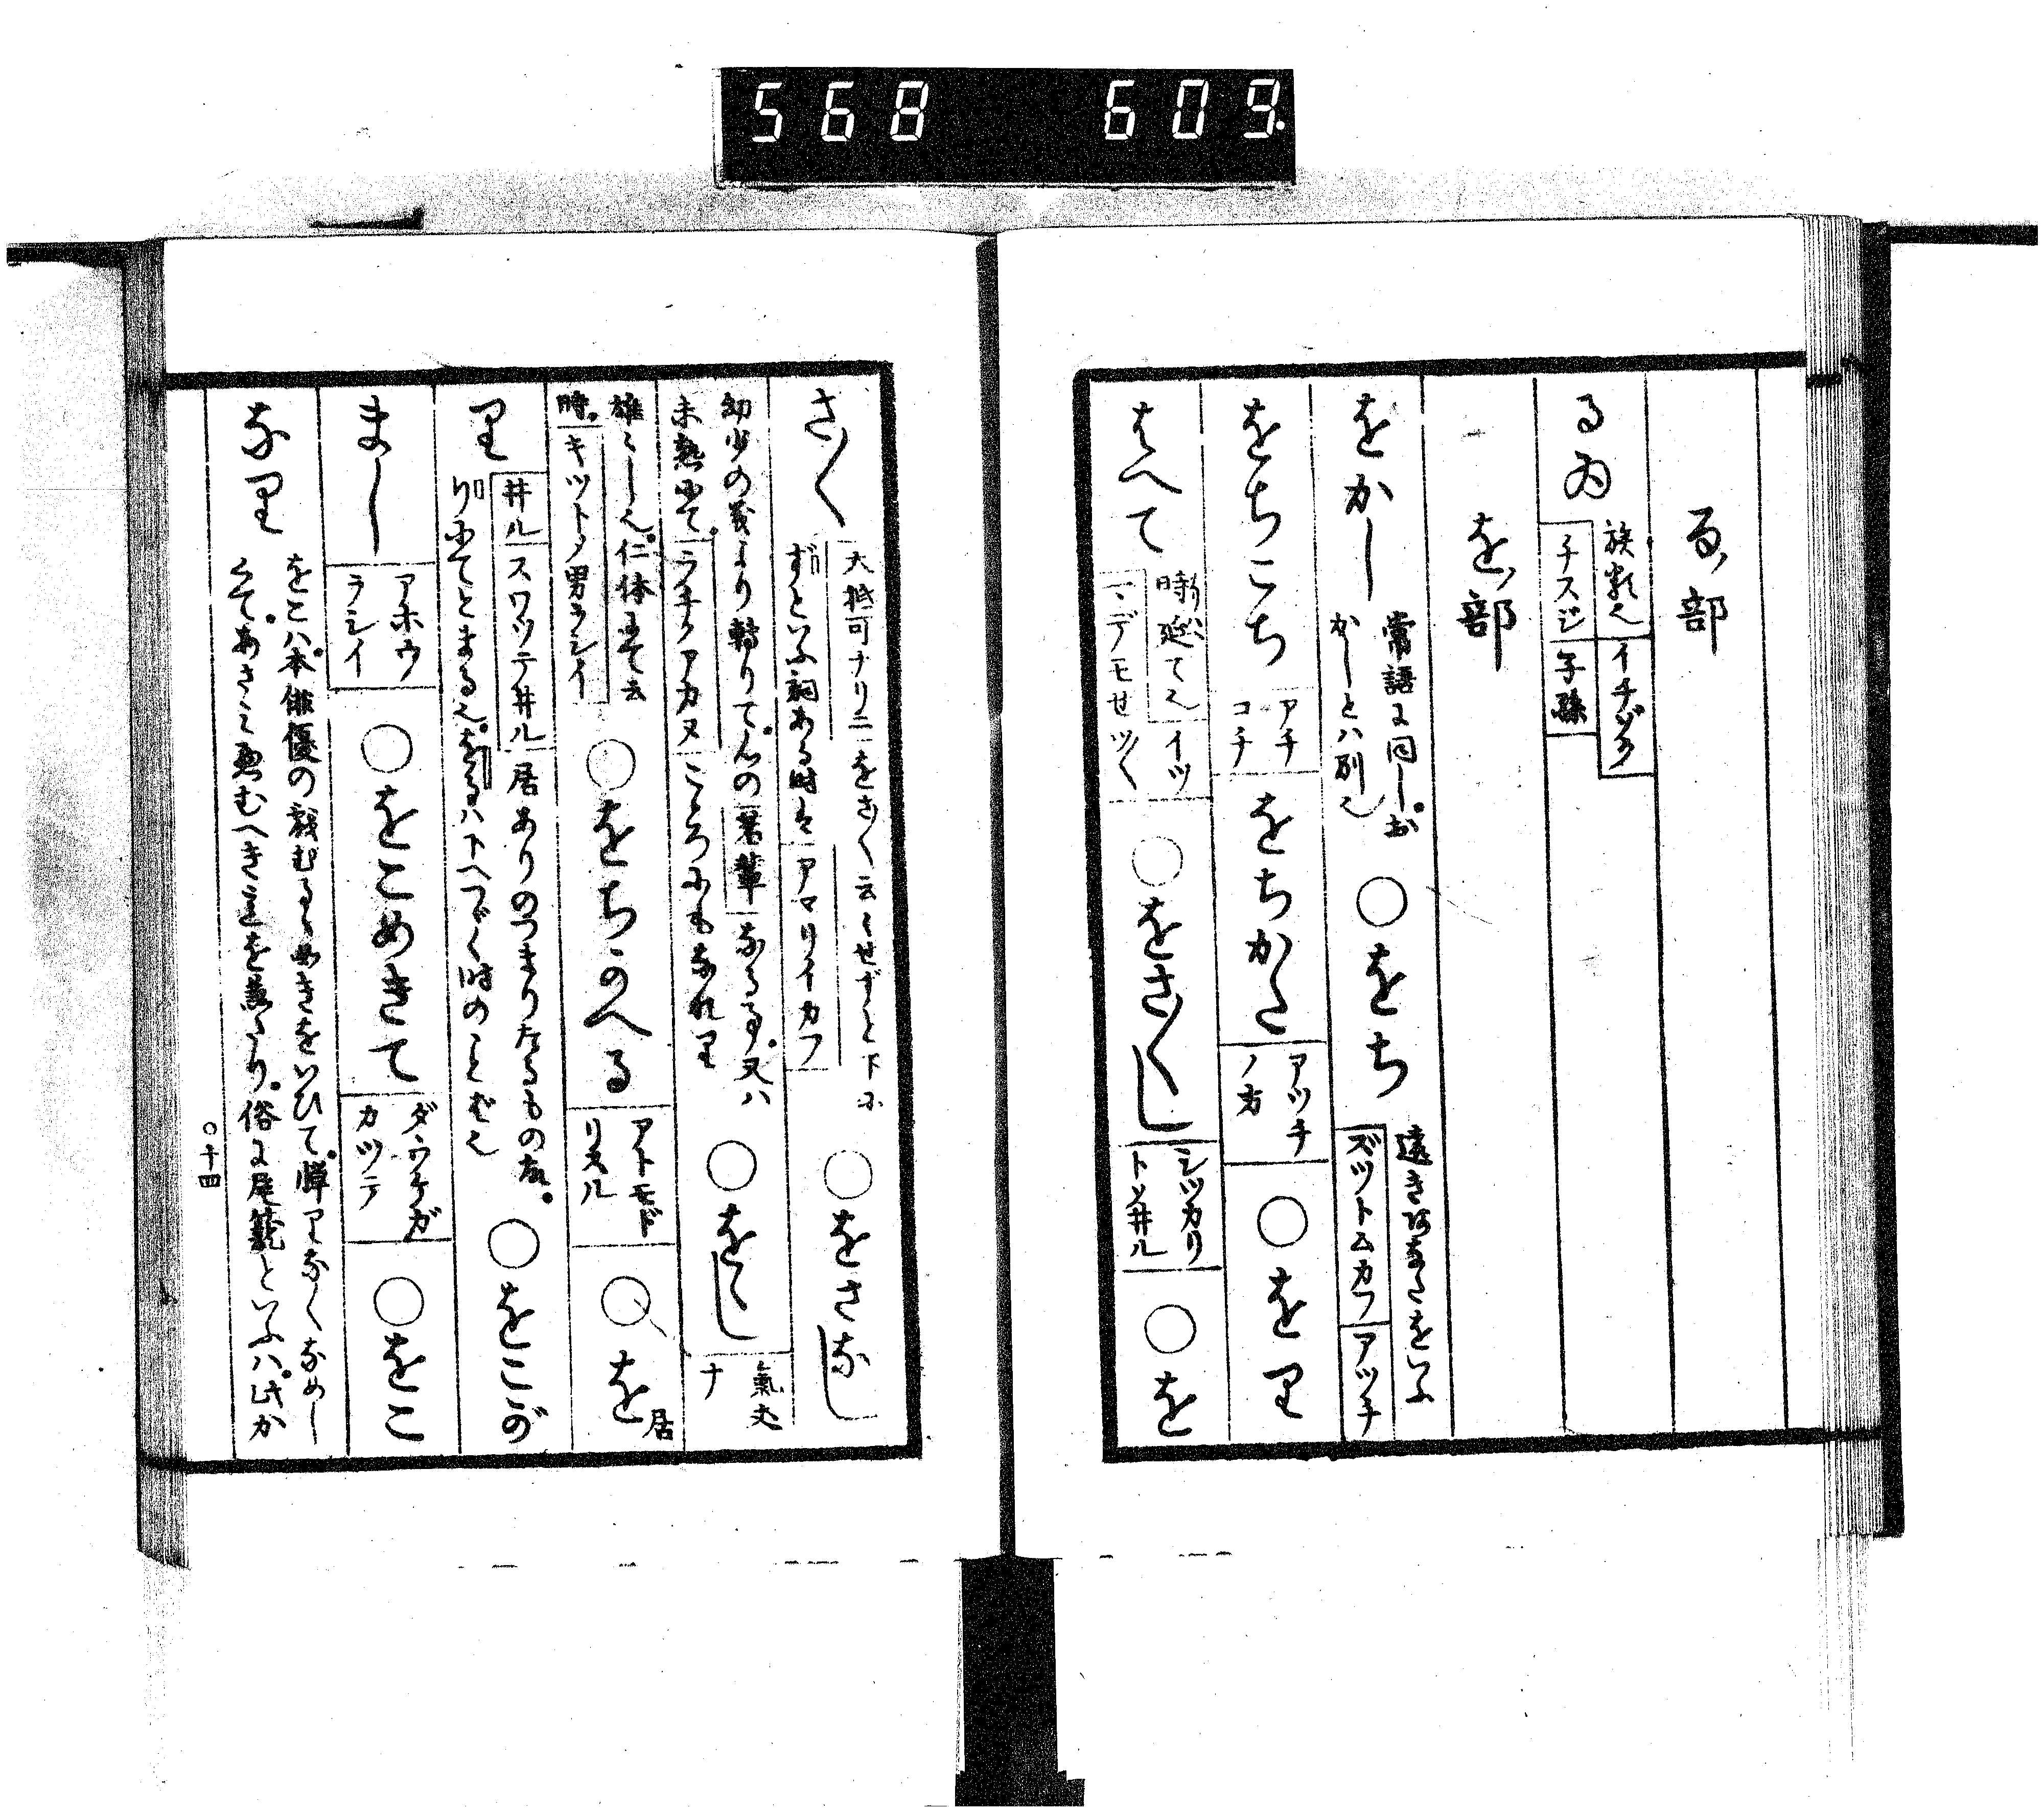 568 609.
ゑ部
るゐ 族類也 イチゾク
チスジ 子孫
を部
をかし 常語に同し。お
かしとハ別也
○をち 遠きかたをいふ
ズツトムカフ アツチ
をちこち アチ
コチ
をちかた アツチ
ノ方
○をり
はへて 時延て也 イツ
マデモせツく
○をさ〱し シツカリ
トソ井ル
○を
さ〱 大抵可ナリニ をさ〱云々せずと下に
ずといふ詞ある時は アマリイカフ
○をさなし
幼少の義より轉りて。心の 若輩 なる事。又ハ
未熟にて。ラチクアカヌ ころにもなれり
○をゝし 氣丈
ナ
雄々しく也。仁体にて云
時。キツトソ男ラシイ
○をちかへる アトモド
リスル
○を 居
り 井ル スワツテ井ル 居ありのつまりたるもの故。
り にてとまる也。をるハ下へつゞく時のことば也
○をこが
まし アホウ
ラシイ
○をこめきて ダウケガ
カツテ
○をこ
なり をこハ。本俳優の戯むるゝめきをいひて。憚りなくなめし
くて。あさみ悪むへき意を兼たり。俗に尾籠といふハ。此か
○十四